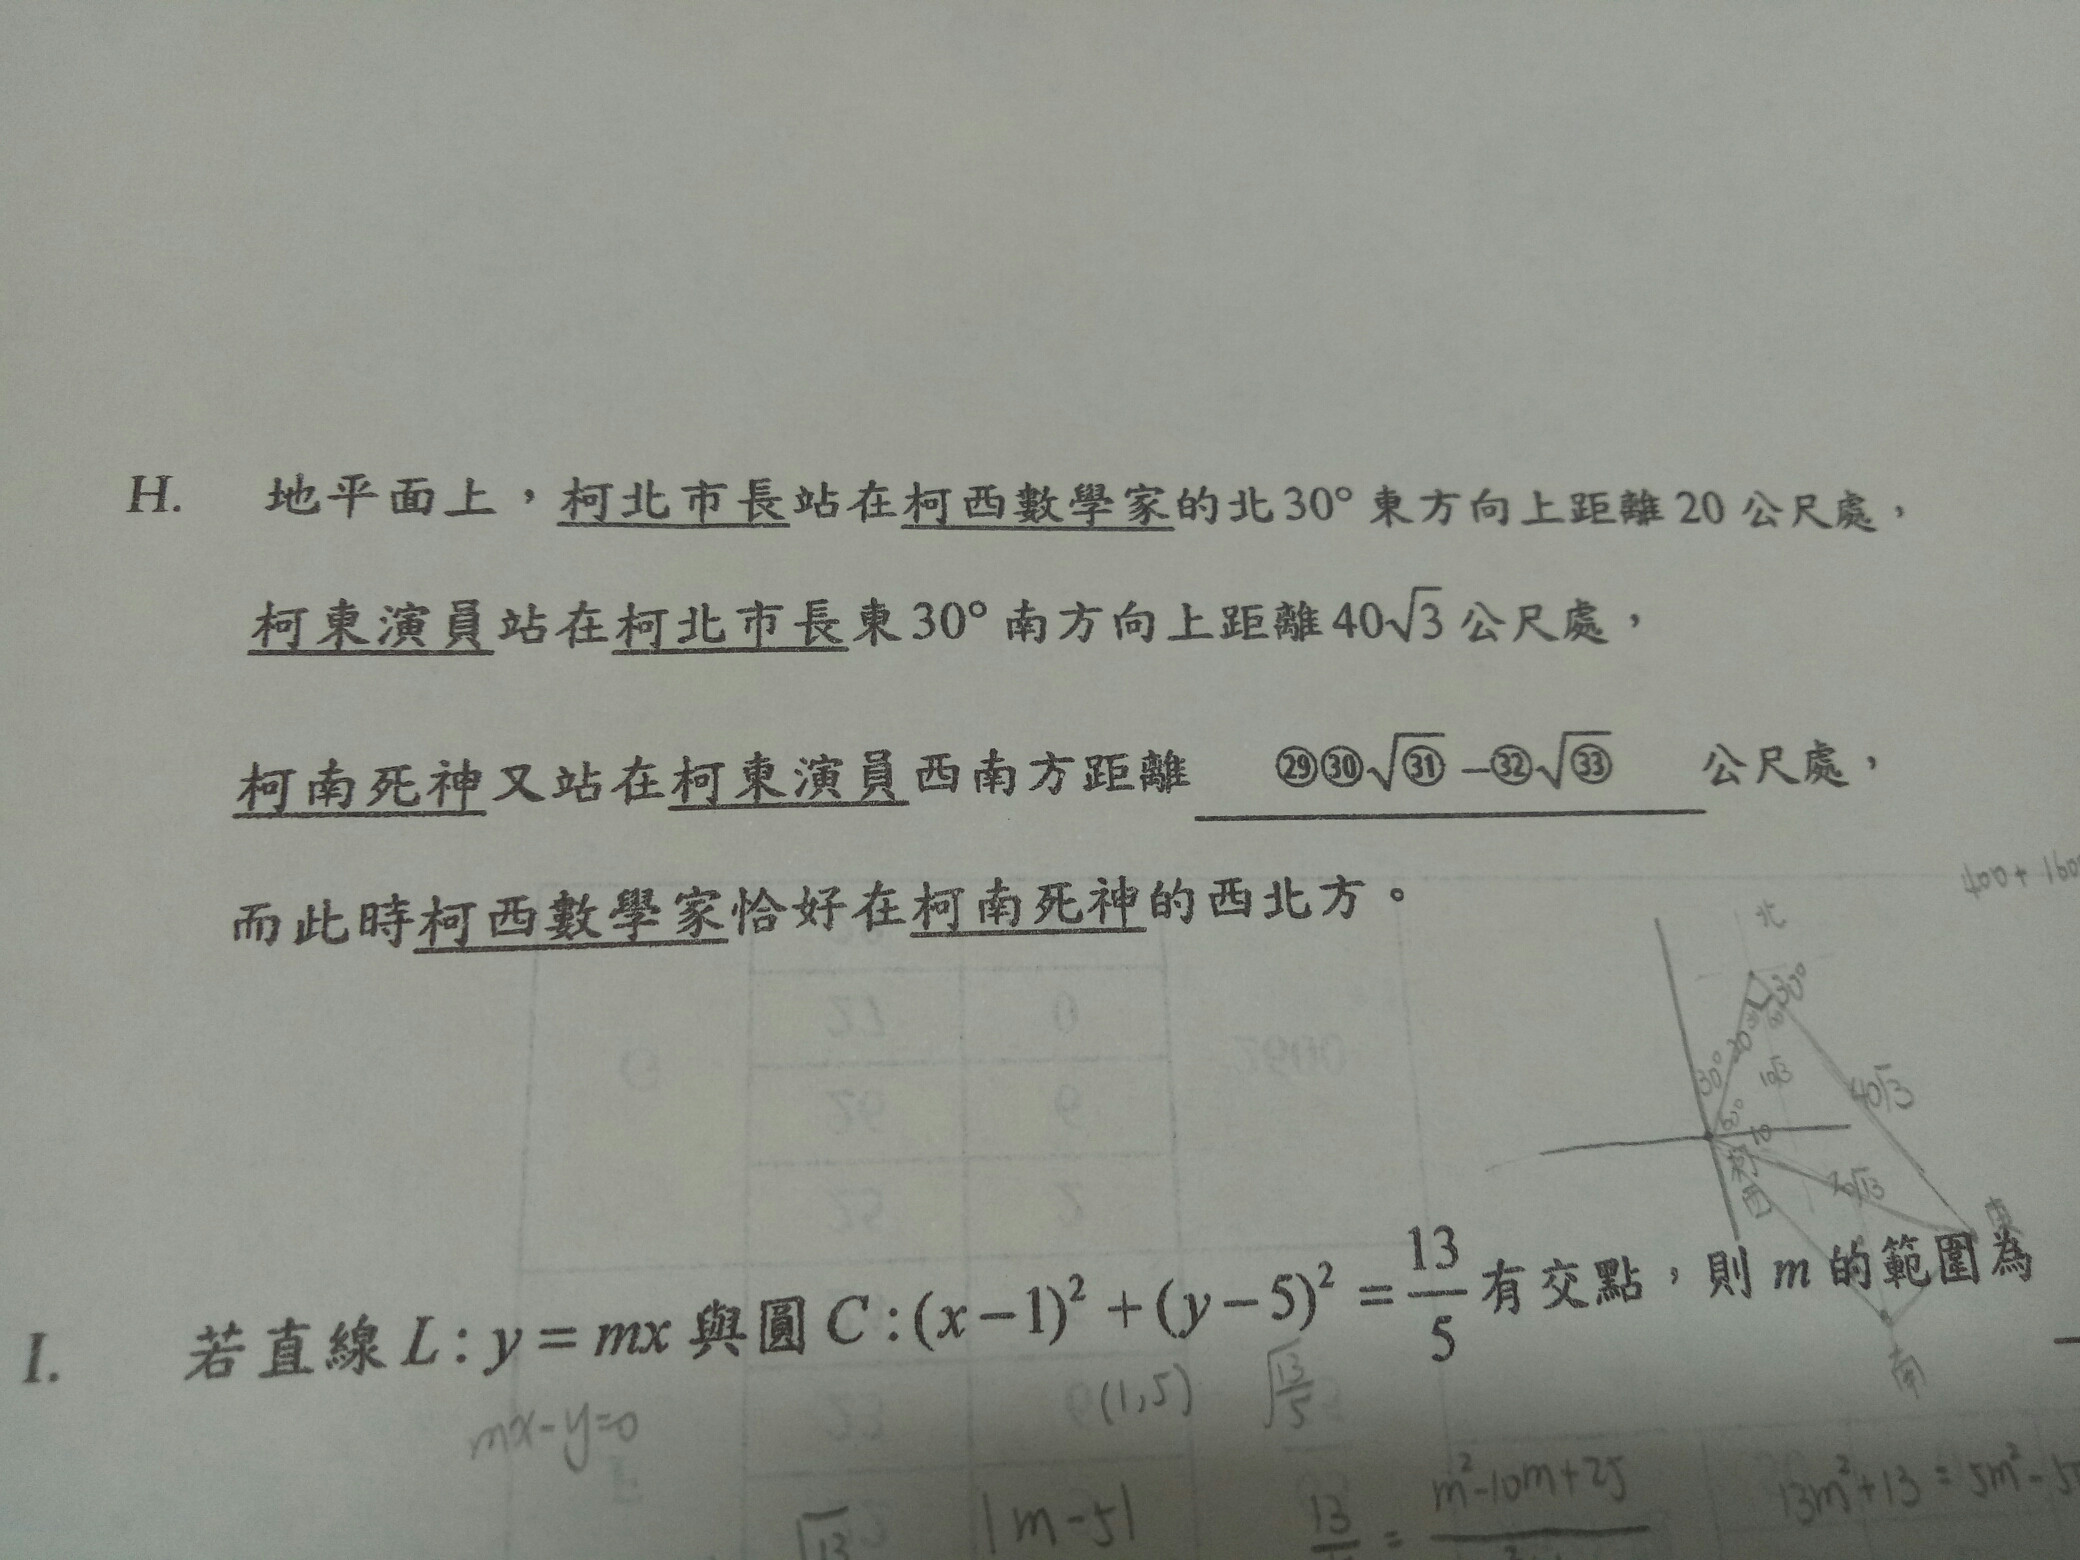 H. 地平面上，柯北市長站在柯西數學家的北30°東方向上距離20公尺處，
柯東演員站在柯北市長東30°南方向上距離40√3公尺處，
柯南死神又站在柯東演員西南方距離 ㉙㉚√㉛ −㉜√㉝ 公尺處，
而此時柯西數學家恰好在柯南死神的西北方。
400+160
北
30°
30°
20
60°
10√3
40√3
10
20√13
東
南
I. 若直線L:y=mx與圓C:(x−1)²+(y−5)²=13/5有交點，則m的範圍為
mx-y=0
(1,5)
√13/5
√13
|m-5|
m²-10m+25
13m²+13=5m²-5